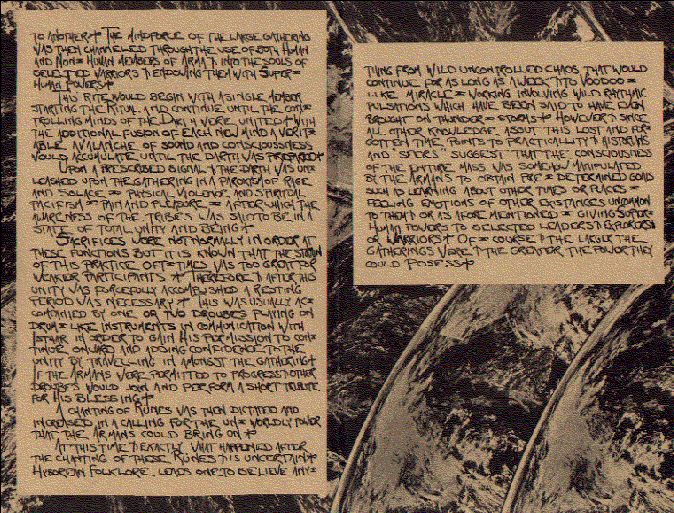 TO ANOTHER+ THE MINDFORCE OF THE LARGE GATHERING
WAS THEN CHANNELED THROUGH THE USE OF BOTH HUMAN
AND NON= HUMAN MEMBERS OF ARMA INTO THE SOULS OF
SELECTED WARRIORS ENDOWING THEM WITH SUPER=
HUMAN POWERS+
THIS RITE WOULD BEGIN WITH A SINGLE MEMBER
STARTING THE RITUAL AND CONTINUE UNTIL THE CON=
TROLLING MINDS OF THE WERE UNITED+ WITH
THE ADDITIONAL FUSION OF EACH NEW MIND A VERIT=
ABLE AVALANCHE OF SOUND AND CONSCIOUSNESS
WOULD ACCUMULATE UNTIL THE WAS PREPARED+
UPON A PRESCRIBED SIGNAL THE WAS UN=
LEASHED UPON THE GATHERING IN A PAROXISM OF RAGE
AND SOLACE = HINDRANCE AND SPIRIT=
PACIFISM = PAIN AND PLEASURE = AFTER WHICH THE
AWARENESS OF THE TRIBES WAS SAID TO BE IN A
STATE OF TOTAL UNITY AND BEING+
SACRIFICES WERE NOT NORMALLY IN ORDER AT
THESE FUNCTIONS BUT IT IS KNOWN THAT THE STRAIN
OF THIS PRACTICE OFT=TIMES WAS TOO GREAT FOR
WEAKER PARTICIPANTS + THEREFORE AFTER HIS
UNITY WAS FORCEFULLY ACCOMPLISHED A RESTING
PERIOD WAS NECESSARY + THIS WAS USUALLY AC=
COMPANIED BY ONE OR TWO PLAYING ON
DRUM= LIKE INSTRUMENTS IN COMMUNICATION WITH
IN ORDER TO GAIN HIS PERMISSION TO CON=
TINUE ONWARD AND ADDING CONFIDENCE TO THE
UNITY BY TRAVELLING IN AMONGST THE GATHERING+
IF THE ARMANS WERE PERMITTED TO PROGRESS OTHER
WOULD JOIN AND PERFORM A SHORT TRIBUTE
FOR HIS BLESSING+
A CHANTING OF RUNES WAS THEN DICTATED AND
INCREASED IN A CALLING FOR THE UN= WORLDLY POWER
THAT THE ARMANS COULD BRING ON +
AT THIS TIME EXACTLY WHAT HAPPENED AFTER
THE CHANTING OF THESE RUNES IS UNCERTAIN+
HIBOREAN FOLKLORE LEADS ONE TO BELIEVE ANY=
THING FROM WILD UNCONTROLLED CHAOS THAT WOULD
CONTINUE FOR AS LONG AS A WEEK TO VOODOO=
LIKE MIRACLE= WORKING INVOLVING WILD RHYTHMIC
PULSATIONS WHICH HAVE BEEN SAID TO HAVE EVEN
BROUGHT ON THUNDER= STORMS+ HOWEVER SINCE
ALL OTHER KNOWLEDGE ABOUT THIS LOST AND FOR=
GOTTEN TIME POINTS TO PRACTICALITY HISTORIANS
AND SEERS SUGGEST THAT THE CONSCIOUSNESS
OF THE ENTIRE MASS WAS SOMEHOW MANIPULATED
BY THE ARMANS TO OBTAIN PRE= DETERMINED GOALS
SUCH AS LEARNING ABOUT OTHER TIMES OR PLACES =
FEELING EMOTIONS OF OTHER EXISTANCES UNCOMMON
TO THEM OR AS AFORE MENTIONED = GIVING SUPER=
HUMAN POWERS TO SELECTED LEADERS EXPLORERS
OR WARRIORS+ OF= COURSE THE LARGER THE
GATHERINGS WERE THE GREATER THE POWER THEY
COULD POSESS+